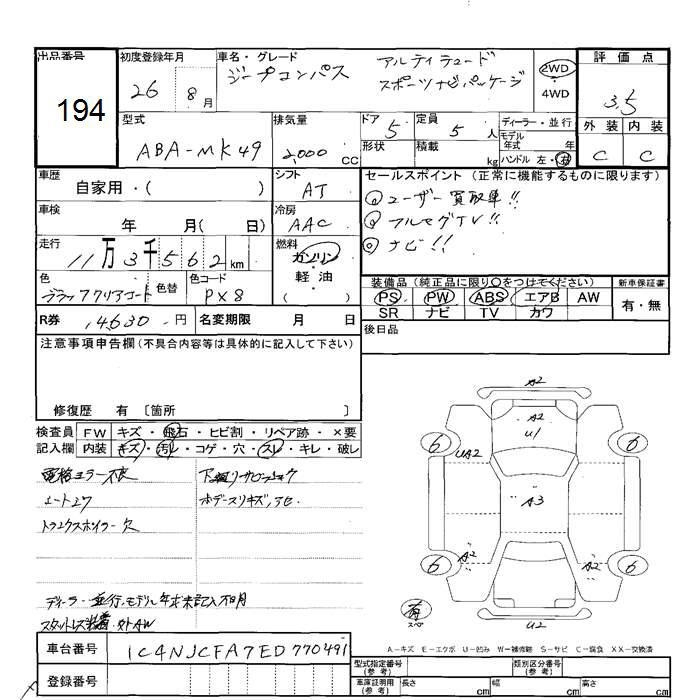 出品番号 194
初度登録年月 26 8月
車名・グレード ジープコンパス
アルティテュード
スポーツナビパッケージ
2WD
4WD
評価点 3.5
外装 内装
C C
型式 ABA-MK49
排気量 2,000 CC
ドア 5
定員 5人
形状
積載 kg
ディーラー・並行
モデル年式 年
ハンドル 左・右
車歴 自家用・( )
シフト AT
セールスポイント(正常に機能するものに限ります)
ユーザー買取車!!
フルセグTV!!
ナビ!!
車検 年 月( 日)
冷房 AAC
走行 11万3千562km
燃料 ガソリン・軽油・( )
色 ブラッククリアコート
色替
色コード PX8
装備品(純正品に限り○をつけてください)
PS PW ABS エアB AW
SR ナビ TV カワ
新車保証書
有・無
R券 14630円
名変期限 月 日
後日品
注意事項申告欄(不具合内容等は具体的に記入して下さい)
修復歴 有〔箇所 〕
検査員記入欄
FW キズ・飛石・ヒビ割・リペア跡・×要
内装 キズ・汚レ・コゲ・穴・スレ・キレ・破レ
シートスレ
ボデースリキズ,
ディーラー並行,モデル年式未記入不明
スタットレス装着・外AW
A2
A2
U1
UA2
A3
A2
A2
U2
6
6
6
6
有
スペ
A-キズ E-エクボ U-凹み W-補修跡 S-サビ C-腐食 XX-交換済
車台番号 1C4NJCFA7ED770491
登録番号
型式指定番号(参考)
類別区分番号(参考)
車庫証明用(参考) 長さ cm 幅 cm 高さ cm